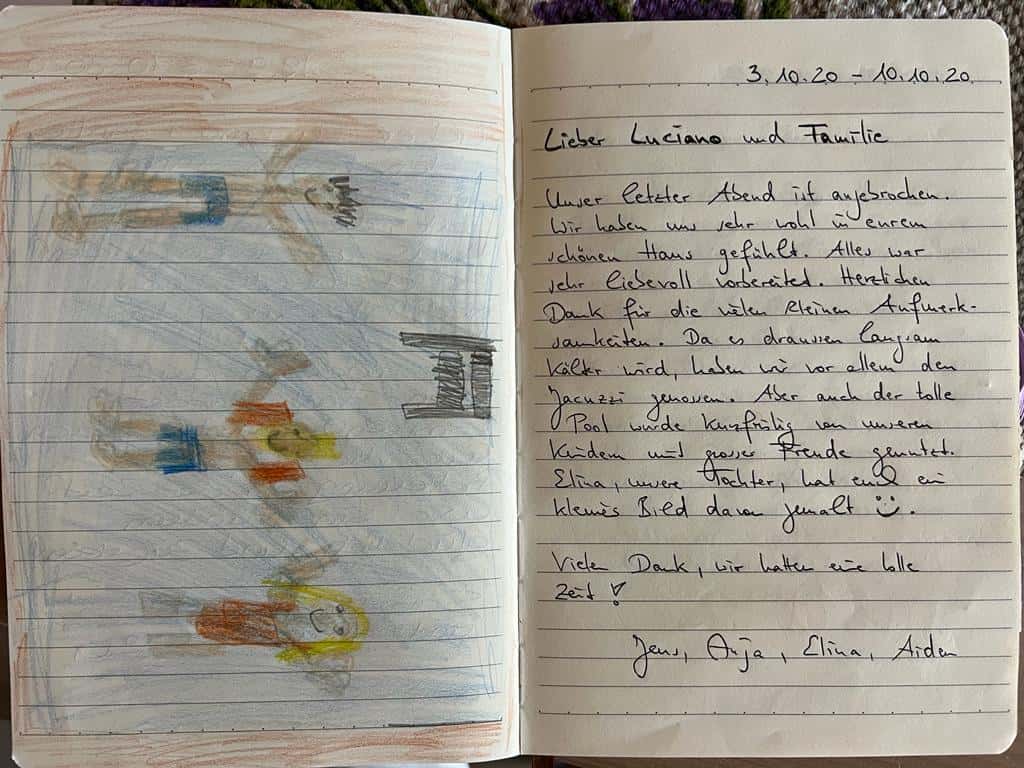 3.10.20 - 10.10.20
Lieber Luciano und Familie
Unser letzter Abend ist angebrochen.
Wir haben uns sehr wohl in eurem
schönen Haus gefühlt. Alles war
sehr liebevoll vorbereitet. Herzlichen
Dank für die vielen kleinen Aufmerk-
samkeiten. Da es draussen langsam
kälter wird, haben wir vor allem den
Jacuzzi genossen. Aber auch der tolle
Pool wurde kurzfristig von unseren
Kindern mit grosser Freude genutzt.
Elina, unsere Tochter, hat euch ein
kleines Bild davon gemalt ü.
Vielen Dank, wir hatten eine tolle
Zeit!
Jens, Anja, Elina, Aiden